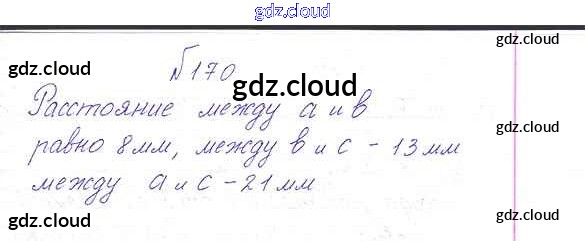 gdz.cloud
gdz.cloud
№170
gdz.cloud
gdz.cloud
Расстояние между a и b
равно 8 мм, между b и c - 13 мм
между a и c - 21 мм
gdz.cloud
gdz.cloud